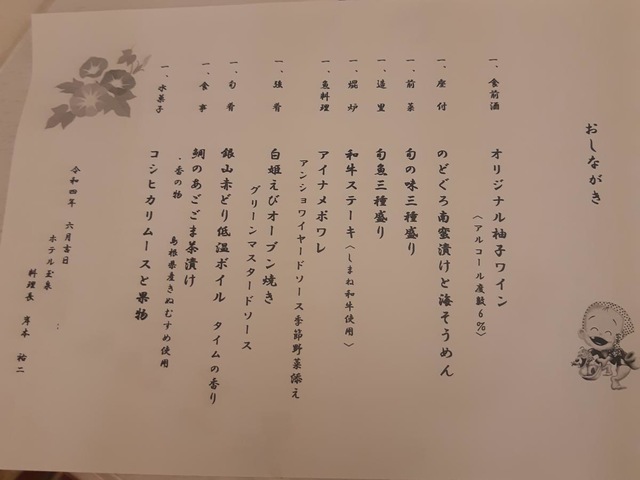 おしながき
一、食前酒 オリジナル柚子ワイン
〈アルコール度数6%〉
一、座付 のどぐろ南蛮漬けと海そうめん
一、前菜 旬の味三種盛り
一、造里 旬魚三種盛り
一、焜炉 和牛ステーキ〈しまね和牛使用〉
一、魚料理 アイナメポワレ
アンショワイヤードソース季節野菜添え
一、強肴 白姫えびオーブン焼き
グリーンマスタードソース
一、旬肴 銀山赤どり低温ボイル タイムの香り
一、食事 鯛のあごごま茶漬け
・香の物 島根県産きぬむすめ使用
一、水菓子 コシヒカリムースと果物
令和四年 六月吉日
ホテル玉泉
料理長 岸本 裕二